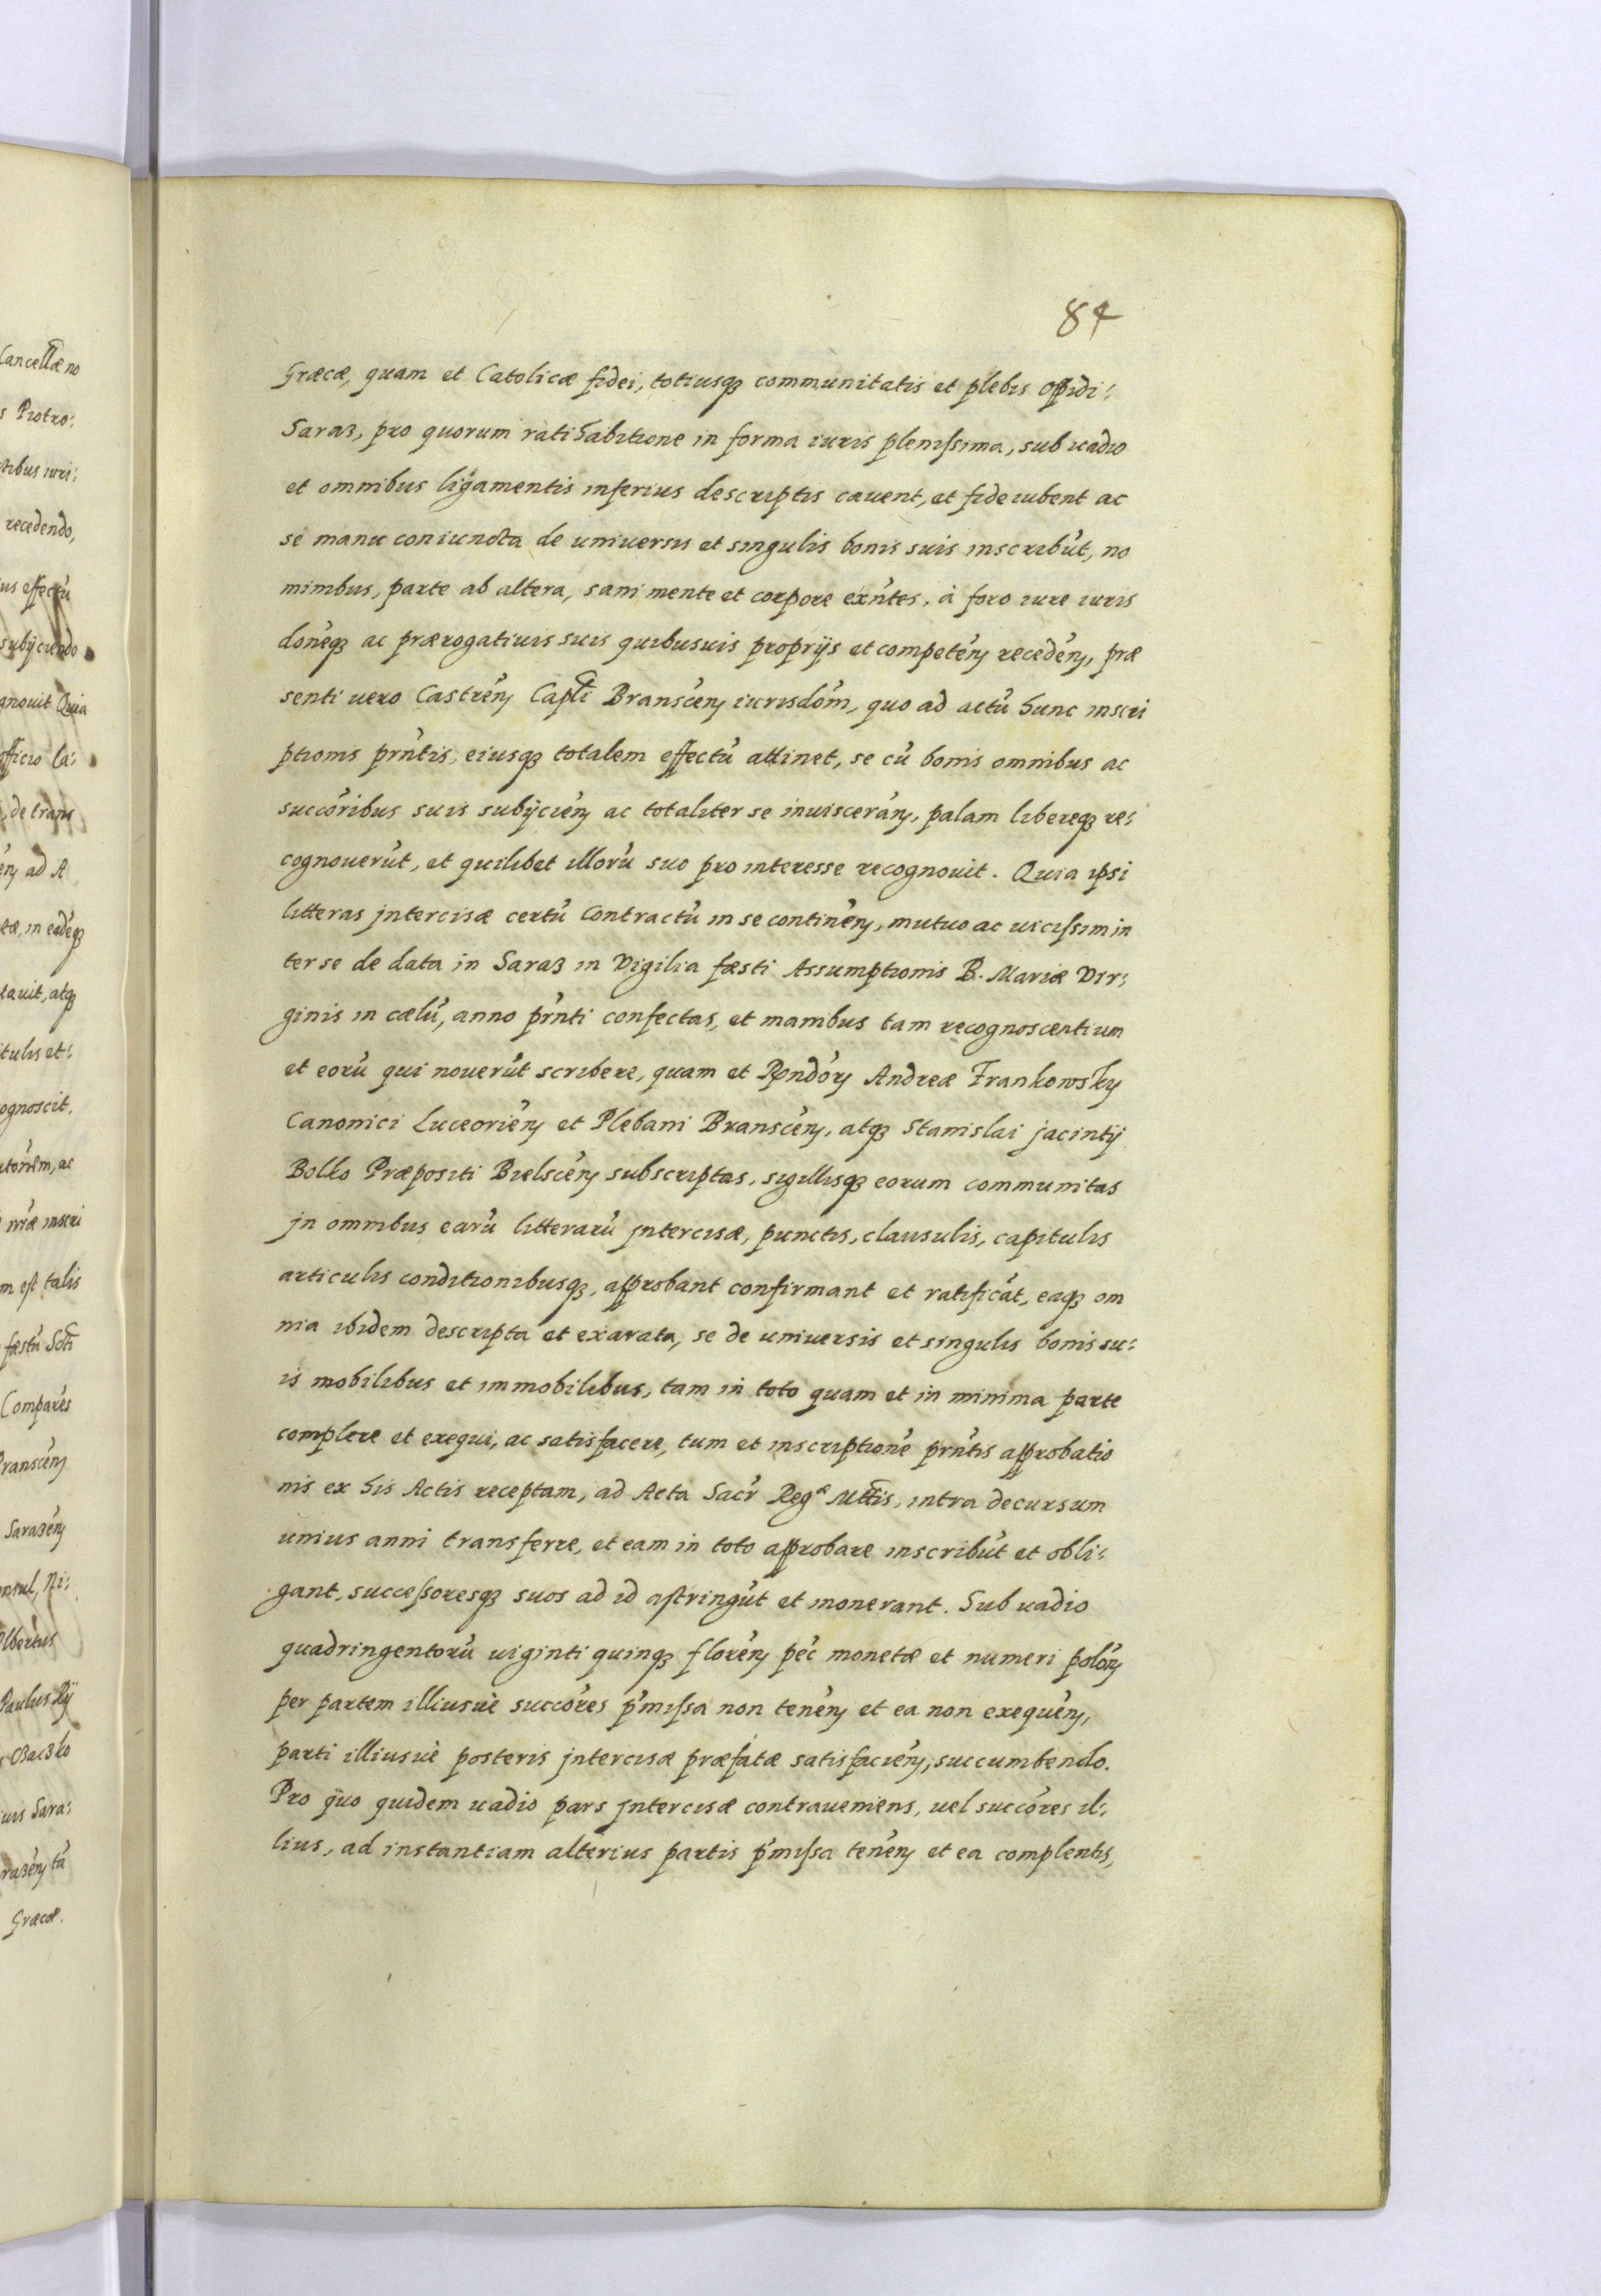 84
Græcæ, quam et Catolicæ fidei, totiusqꝫ communitatis et plebis oppidi:
Saraz, pro quorum ratihabitione in forma iuris plenissima, sub uadio
et omnibus ligamentis inferius descriptis cauent, et fideiubent ac
se manu coniuncta de uniuersis et singulis bonis suis inscribūt, no
minibus, parte ab altera, sani mente et corpore exńtes, à foro iure iuris
donéqꝫ ac prærogatiuis suis quibusuis proprijs et competéń recedéń, præ
senti uero Castréń Capłi Branscéń iurisdóm, quo ad actū hunc inscri
ptionis prńtis, eiusqꝫ totalem effectū attinet, se cū bonis omnibus ac
succóribus suis subijciéń ac totaliter se inuisceráń, palam libereqꝫ re:
cognouerūt, et quilibet illorū suo pro interesse recognouit. Quia ipsi
litteras jntercisæ certū contractū in se continéń, mutuo ac uicissim in
ter se de data in Saraz in Vigilia fæsti Assumptionis B. Mariæ Vir:
ginis in cælū, anno prńti confectas, et manibus tam recognoscentium
et eorū qui nouerūt scribere, quam et Rńdóń Andreæ Frankowsky
Canonici Luceoriéń et Plebani Branscéń, atqꝫ Stanislai jacintij
Bolko Præpositi Bielscéń subscriptas, sigillisqꝫ eorum communitas
jn omnibus earū litterarū jntercisæ, punctis, clausulis, capitulis
articulis conditionibusqꝫ, approbant confirmant et ratificāt, eaqꝫ om
nia ibidem descripta et exarata, se de uniuersis et singulis bonis su:
is mobilibus et immobilibus, tam in toto quam et in minima parte
complere et exequi, ac satisfacere, tum et inscriptionē prńtis approbatio
nis ex his Actis receptam, ad Acta Sacŕ Regᵃ Mttis, intra decursum
unius anni transferre, et eam in toto approbare inscribūt et obli:
gant, successoresqꝫ suos ad id astringūt et inonerant. Sub uadio
quadringentorū uiginti quinqꝫ floréń péc monetæ et numeri polóń
per partem illiusuè succóres ṕmissa non tenéń et ea non exequéń,
parti illiusuè posteris jntercisæ præfatæ satisfaciéń, succumbendo.
Pro quo quidem uadio pars jntercisæ contraueniens, uel succóres il:
lius, ad instantiam alterius partis ṕmissa tenéń et ea complentis,